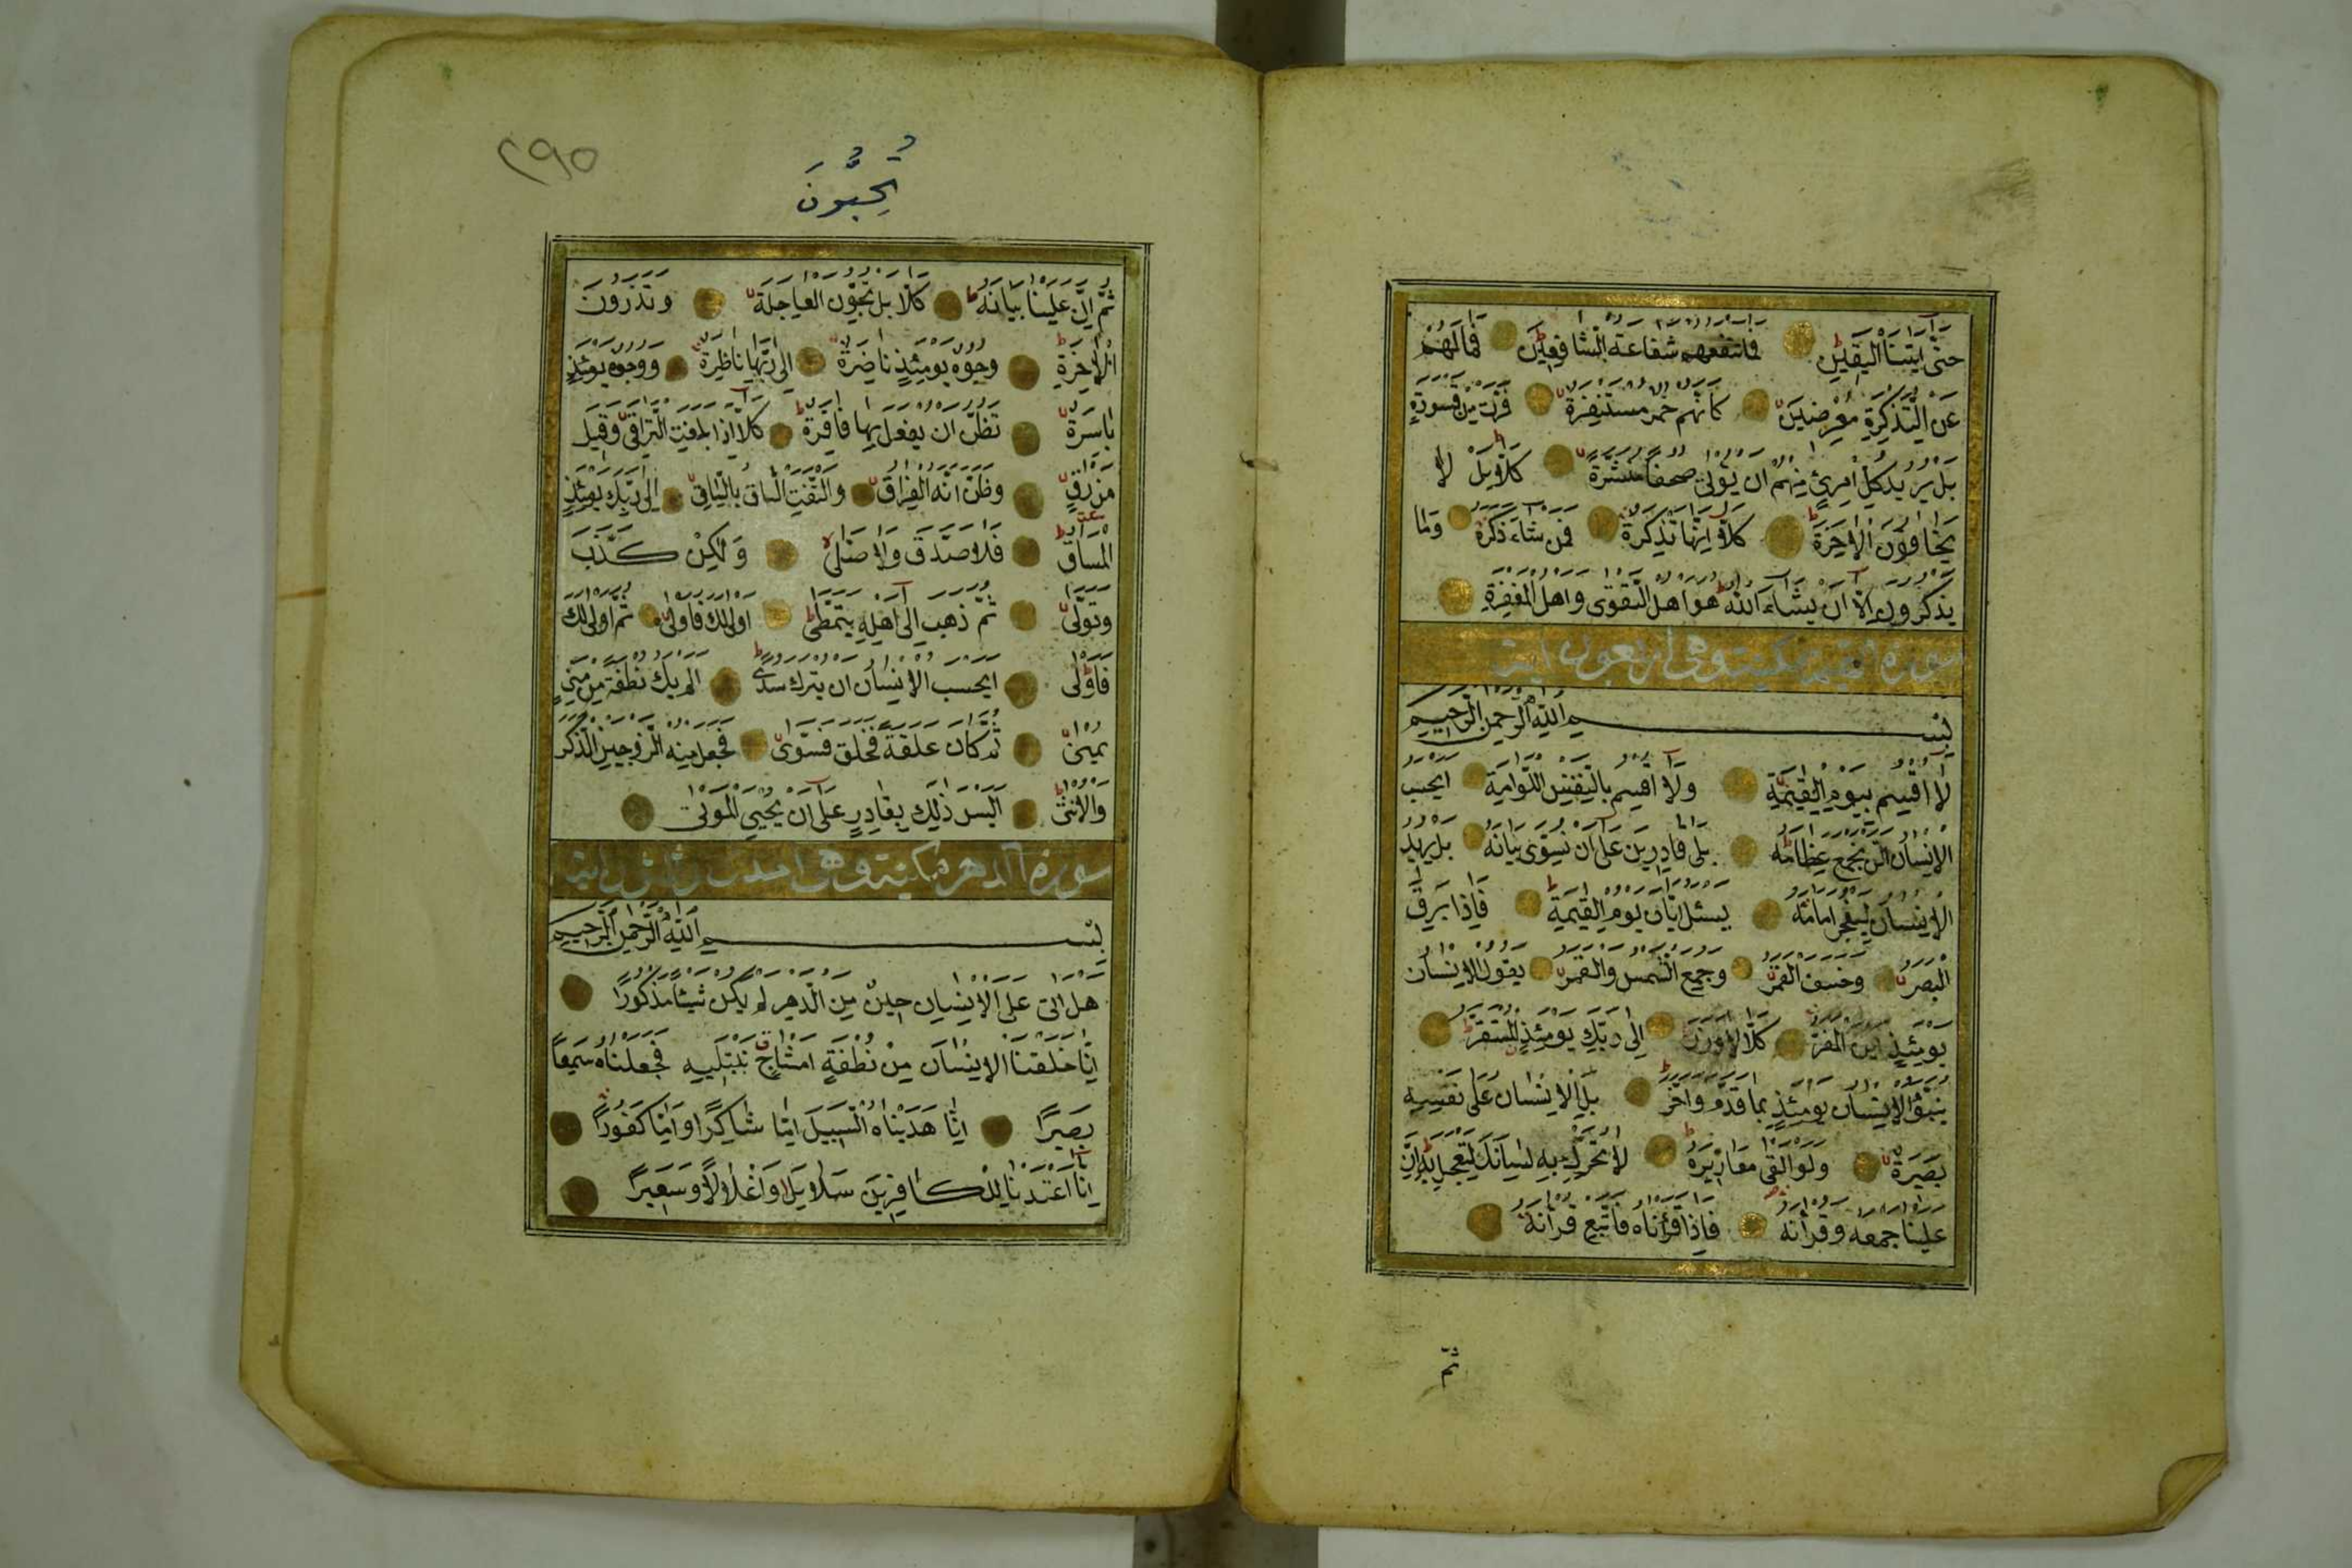 حتى اتينا اليقين فما تنفعهم شفاعة الشافعين فما لهم
عن التذكرة معرضين كانهم حمر مستنفرة فرت من قسورة
بل يريد كل امرئ منهم ان يؤتى صحفا منشرة كلا بل لا
يخافون الاخرة كلا انها تذكرة فمن شاء ذكره وما
يذكرون الا ان يشاء الله هو اهل التقوى واهل المغفرة
سورة مكية وهي اربعون اية
بسم الله الرحمن الرحيم
لا اقسم بيوم القيمة ولا اقسم بالنفس اللوامة ايحسب
الانسان الن نجمع عظامه بلى قادرين على ان نسوى بنانه بل يريد
الانسان ليفجر امامه يسئل ايان يوم القيمة فاذا برق
البصر وخسف القمر وجمع الشمس والقمر يقول الانسان
يومئذ اين المفر كلا لا وزر الى ربك يومئذ المستقر
ينبؤ الانسان يومئذ بما قدم واخر بل الانسان على نفسه
بصيرة ولو القى معاذيره لا تحرك به لسانك لتعجل به ان
علينا جمعه وقرانه فاذا قراناه فاتبع قرانه
ثم
٢٩٥
تُحِبُّونَ
ثم ان علينا بيانه كلا بل تحبون العاجلة وتذرون
الاخرة وجوه يومئذ ناضرة الى ربها ناظرة ووجوه يومئذ
باسرة تظن ان يفعل بها فاقرة كلا اذا بلغت التراقى وقيل
من راق وظن انه الفراق والتفت الساق بالساق الى ربك يومئذ
المساق فلا صدق ولا صلى ولكن كذب
وتولى ثم ذهب الى اهله يتمطى اولى لك فاولى ثم اولى لك
فاولى ايحسب الانسان ان يترك سدى الم يك نطفة من منى
يمنى ثم كان علقة فخلق فسوى فجعل منه الزوجين الذكر
والانثى اليس ذلك بقادر على ان يحيى الموتى
سورة الدهر مكية وهى احدى وثلاثون اية
بسم الله الرحمن الرحيم
هل اتى على الانسان حين من الدهر لم يكن شيئا مذكورا
انا خلقنا الانسان من نطفة امشاج نبتليه فجعلناه سميعا
بصيرا انا هديناه السبيل اما شاكرا واما كفورا
انا اعتدنا للكافرين سلاسلا واغلالا وسعيرا